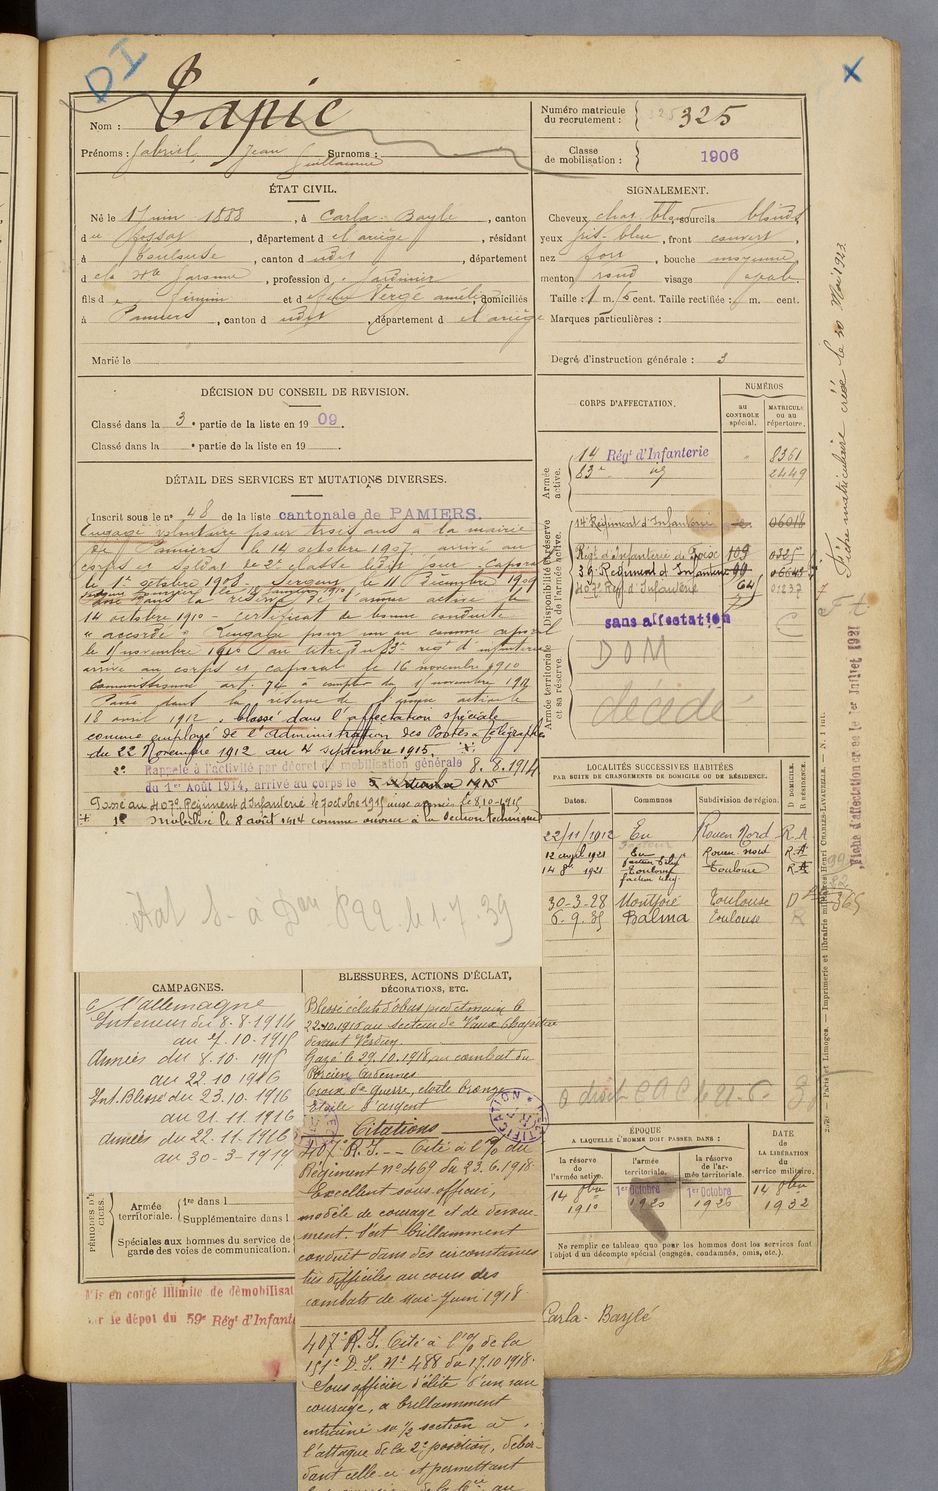 DI
X
Nom : Tapie
Prénoms : Gabriel, Jean Surnoms :
Guillaume
Numéro matricule
du recrutement : 325
Classe
de mobilisation : 1906
ÉTAT CIVIL.
Né le 1 Juin 1888, à Carla-Bayle, canton
du Fossat, département d l'ariège, résidant
à Toulouse, canton d udit, département
d e la Hte Garonne, profession d Jardinier
fils d e Firmin et d e Vergé amélie, domiciliés
à Pamiers, canton d udit, département d el'ariège
Marié le
SIGNALEMENT.
Cheveux chat. bl. sourcils blonds
yeux gris-bleu, front couvert,
nez fort, bouche moyenne,
menton rond visage ovale
Taille : 1 m. cent. Taille rectifiée : m. cent.
Marques particulières :
Degré d'instruction générale : 3
DÉCISION DU CONSEIL DE REVISION.
Classé dans la 3e partie de la liste en 1909.
Classé dans la e partie de la liste en 19 .
DÉTAIL DES SERVICES ET MUTATIONS DIVERSES.
Inscrit sous le no 48 de la liste cantonale de PAMIERS.
Engagé volontaire pour trois ans à la mairie
de Pamiers le 14 octobre 1907. arrivé au
corps et soldat de 2e classe ledit jour. Caporal
le 1er octobre 1908 - Sergent le 11 Décembre 1909
Passé dans la réserve de l'armée active le
14 octobre 1910 - Certificat de bonne conduite
"accordé". Rengagé pour un an comme caporal
le 15 novembre 1910 au 83e régt d'infanterie
arrivé au corps et caporal le 16 novembre 1910
Commissionné art. 74 à compter du 15 novembre 1911
Passé dans la réserve de l'armée active le
18 avril 1912. Classé dans l'affectation spéciale
comme employé de l'Administration des Postes & Télégraphes
du 22 Novembre 1912 au 4 septembre 1915.
2o Rappelé à l'activité par décret de mobilisation générale 8.8.1914
du 1er Août 1914, arrivé au corps le 5 septembre 1915
Passé au 407e Régiment d'Infanterie le 7 octobre 1915 aux armées le 8.10.1915
1o Mobilisé le 8 août 1914 comme ouvrier à la Section technique
CORPS D'AFFECTATION.
NUMÉROS
au
CONTRÔLE
spécial.
MATRICULE
ou au
répertoire.
Armée
active.
14 Régt d'Infanterie 8361
83e 2449
Disponibilité et réserve
de l'armée active.
14 Régiment d'Infanterie 06018
Régt d'Infanterie de Foix 109
39 Régiment d'Infanterie
407e Régt d'Infanterie 64
sans affectation
Armée territoriale
et sa réserve.
DOM
décédé
LOCALITÉS SUCCESSIVES HABITÉES
PAR SUITE DE CHANGEMENTS DE DOMICILE OU DE RÉSIDENCE.
Dates. Communes Subdivision de région. D DOMICILE. R RÉSIDENCE.
22/11/1912 Eu Rouen Nord R.A
12 avril 1921 Eu Rouen Nord R.A
facteur
14 8bre 1921 Toulouse Toulouse R.A
facteur
30-3-28 Montjoire Toulouse D
6.9.35 Balma Toulouse R
Fiche matriculaire créée le 20 Mai 1922
Fiche d'affectation créée le 1er Juillet 1921
CAMPAGNES.
C/ l'allemagne
Intérieur du 8.8.1914
au 7.10.1915
Armées du 8.10.1915
au 22.10 1916
Int. Blessé du 23.10.1916
au 21.11.1916
Armées du 22.11.1916
au 30-3-1919
BLESSURES, ACTIONS D'ÉCLAT,
DÉCORATIONS, ETC.
Blessé éclat d'obus
22.10.1916 au secteur de Vaux Chapitre
devant Verdun
Gazé le 29.10.1918 au combat du
Porcien Ardennes
Croix de Guerre, étoile bronze
Etoile d'argent
Citations
407e R.I. -- Cité à l'o/ du
Régiment no 469 du 23.6.1918.
Excellent sous-officier,
modèle de courage et de dévoue-
ment. S'est brillamment
conduit dans des circonstances
très difficiles au cours des
combats de Mai-Juin 1918.
407e R.I. Cité à l'o/ de la
151e D.I. No 488 du 17.10.1918.
Sous officier d'élite d'un rare
courage, a brillamment
entraîné sa 1/2 section à
l'attaque de la 2e position, débor-
dant celle-ci et permettant
PÉRIODES D'EXERCICES.
Armée
territoriale.
1re dans l
Supplémentaire dans l
Spéciales aux hommes du service de
garde des voies de communication.
ÉPOQUE
A LAQUELLE L'HOMME DOIT PASSER DANS :
la réserve
de l'armée active.
l'armée
territoriale.
la réserve
de l'ar-
mée territoriale.
DATE
de
LA LIBÉRATION
du
service militaire.
14 8bre
1910
1er Octobre
1920
1er Octobre
1926
14 8bre
1932
Ne remplir ce tableau que pour les hommes dont les services font
l'objet d'un décompte spécial (engagés, condamnés, omis, etc.).
Mis en congé illimité de démobilisat
le dépot du 59e Régt d'Infant
Carla-Baylé
Paris et Limoges. — Imprimerie et librairie militaires Henri CHARLES-LAVAUZELLE.